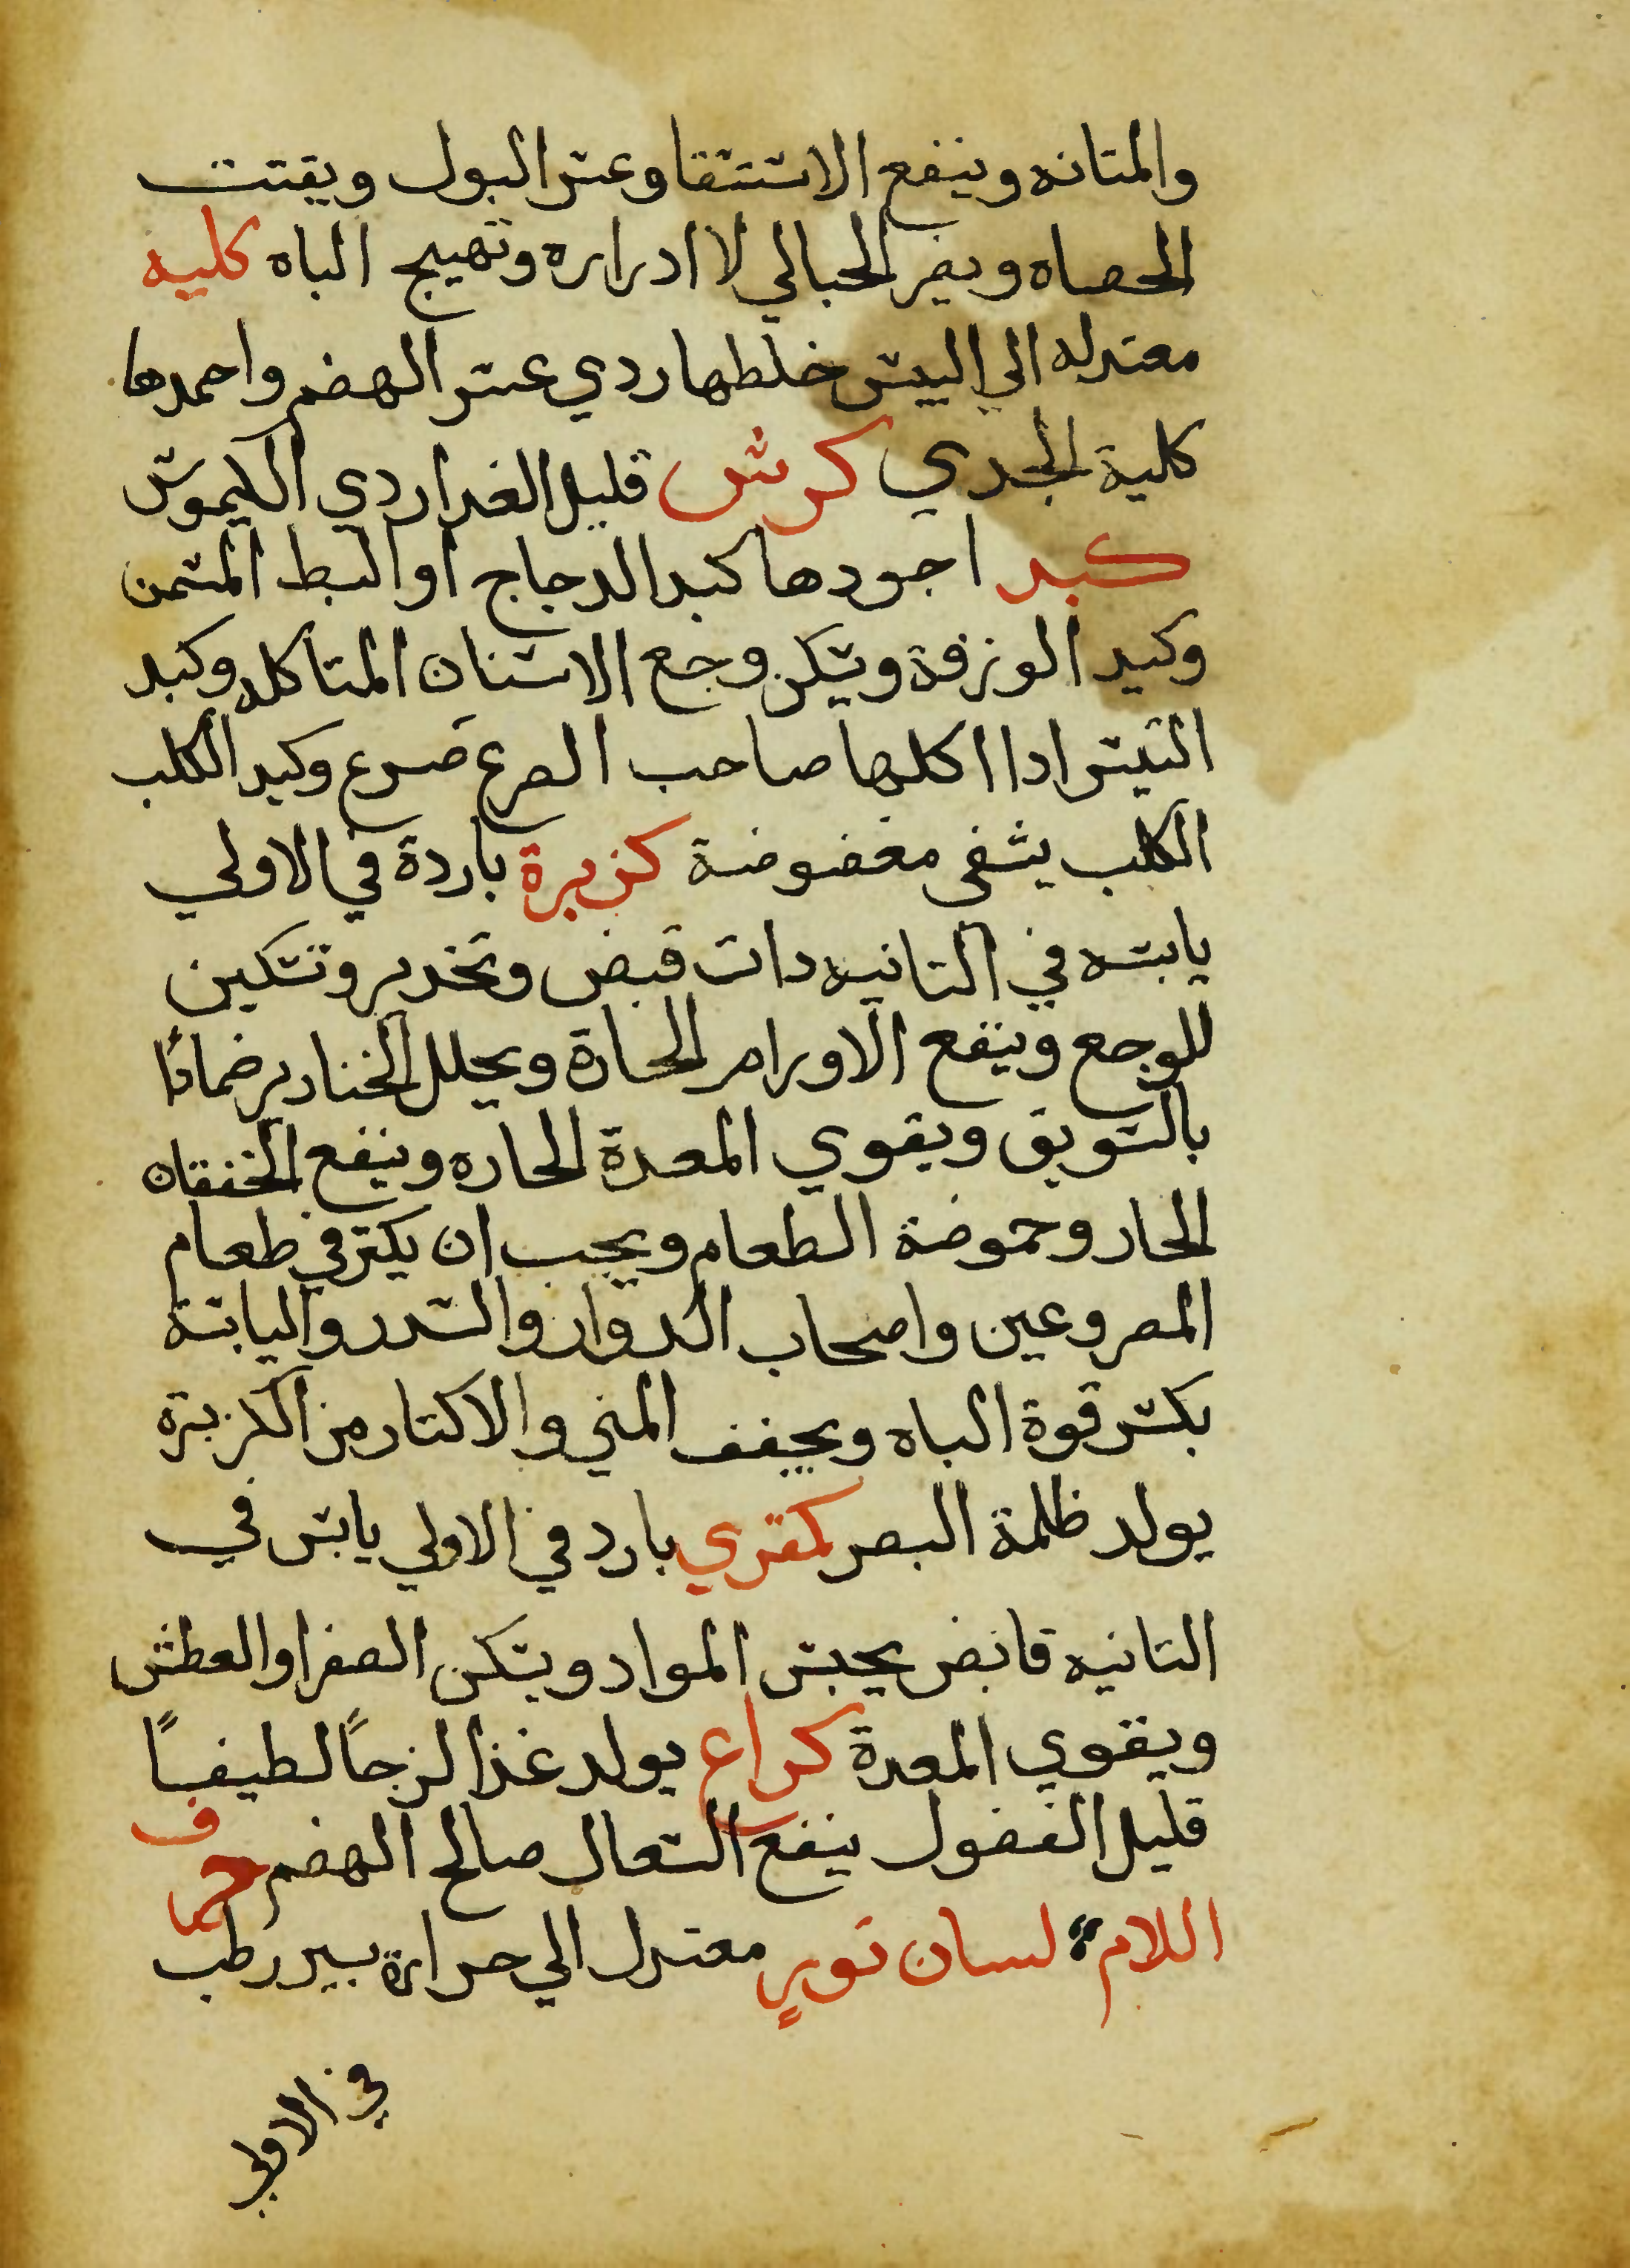 والمتانه وينفع الاستسقا وعسر البول ويفتت
الحصاه ويضر الحبالي لا ادراره وتهيج الباه كليه
معتدله الي اليبس خلطها ردي عسر الهضم واحمدها
كلية الجدي كرش قليل الغدا ردي الكيموس
كبد اجودها كبد الدجاج او البط المسمن
وكبد الوزغة ويسكن وجع الاسنان المتاكله وكبد
التيس ادا اكلها صاحب الصرع صرع وكبد الكلب
الكلب يشفى معضوضة كزبرة باردة في الاولي
يابسه في التانيه دات قبض وتخدير وتسكين
للوجع وينفع الاورام الحارة ويحلل الخنازير ضمادًا
بالسويق ويقوي المعدة الحاره وينفع الخفقان
الحار وحموضة الطعام ويجب ان يكتر في طعام
المصروعين واصحاب الدوار والسدر واليابسة
يكسر قوة الباه ويجفف المني والاكتار من الكزبرة
يولد ظلمة البصر كمتري بارد في الاولي يابس في
التانيه قابض يحبس المواد ويسكن الصفرا والعطش
ويقوي المعدة كراع يولد غذا لزجاً لطيفاً
قليل الفضول ينفع السعال صالح الهضم حرف
اللام لسان تور معتدل الي حرارة يسير رطب
في الاولي